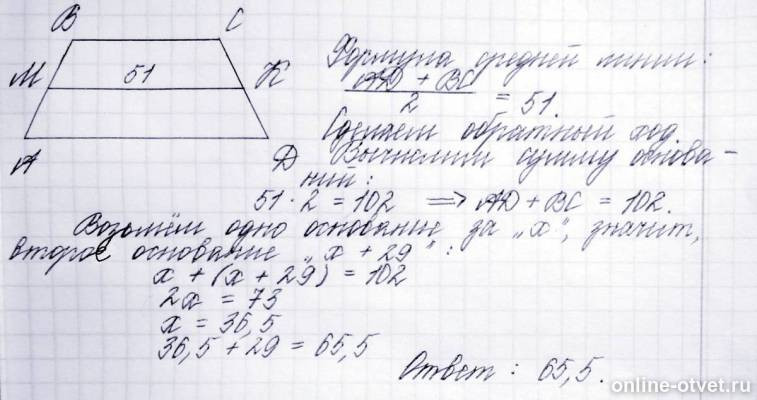 В С
М 51 К
А Д
Формула средней линии:
AD + BC
2 = 51.
Сделаем обратный ход.
Вычислим сумму основа-
ний:
51 · 2 = 102 ⟹ AD + BC = 102.
Возьмём одно основание за „x“, значит,
второе основание „x + 29“:
x + (x + 29) = 102
2x = 73
x = 36,5
36,5 + 29 = 65,5
Ответ: 65,5.
online-otvet.ru